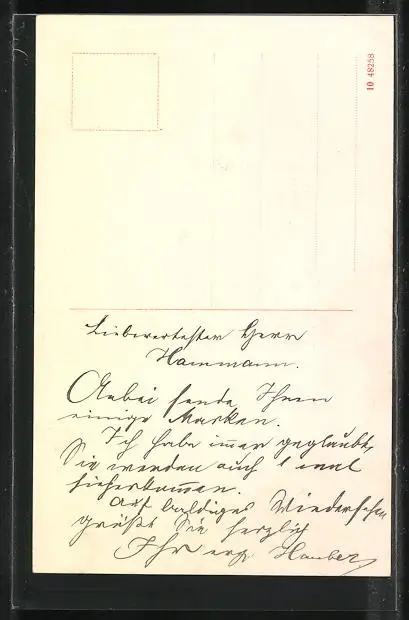 10 48258
Liebwertester Herr
Hammann.
Anbei sende Ihnen
einige Marken.
Ich habe immer geglaubt,
Sie werden auch 1 mal
hieherkommen.
Auf baldiges Wiedersehen
grüßt Sie herzlich
Ihr erg. Hauber